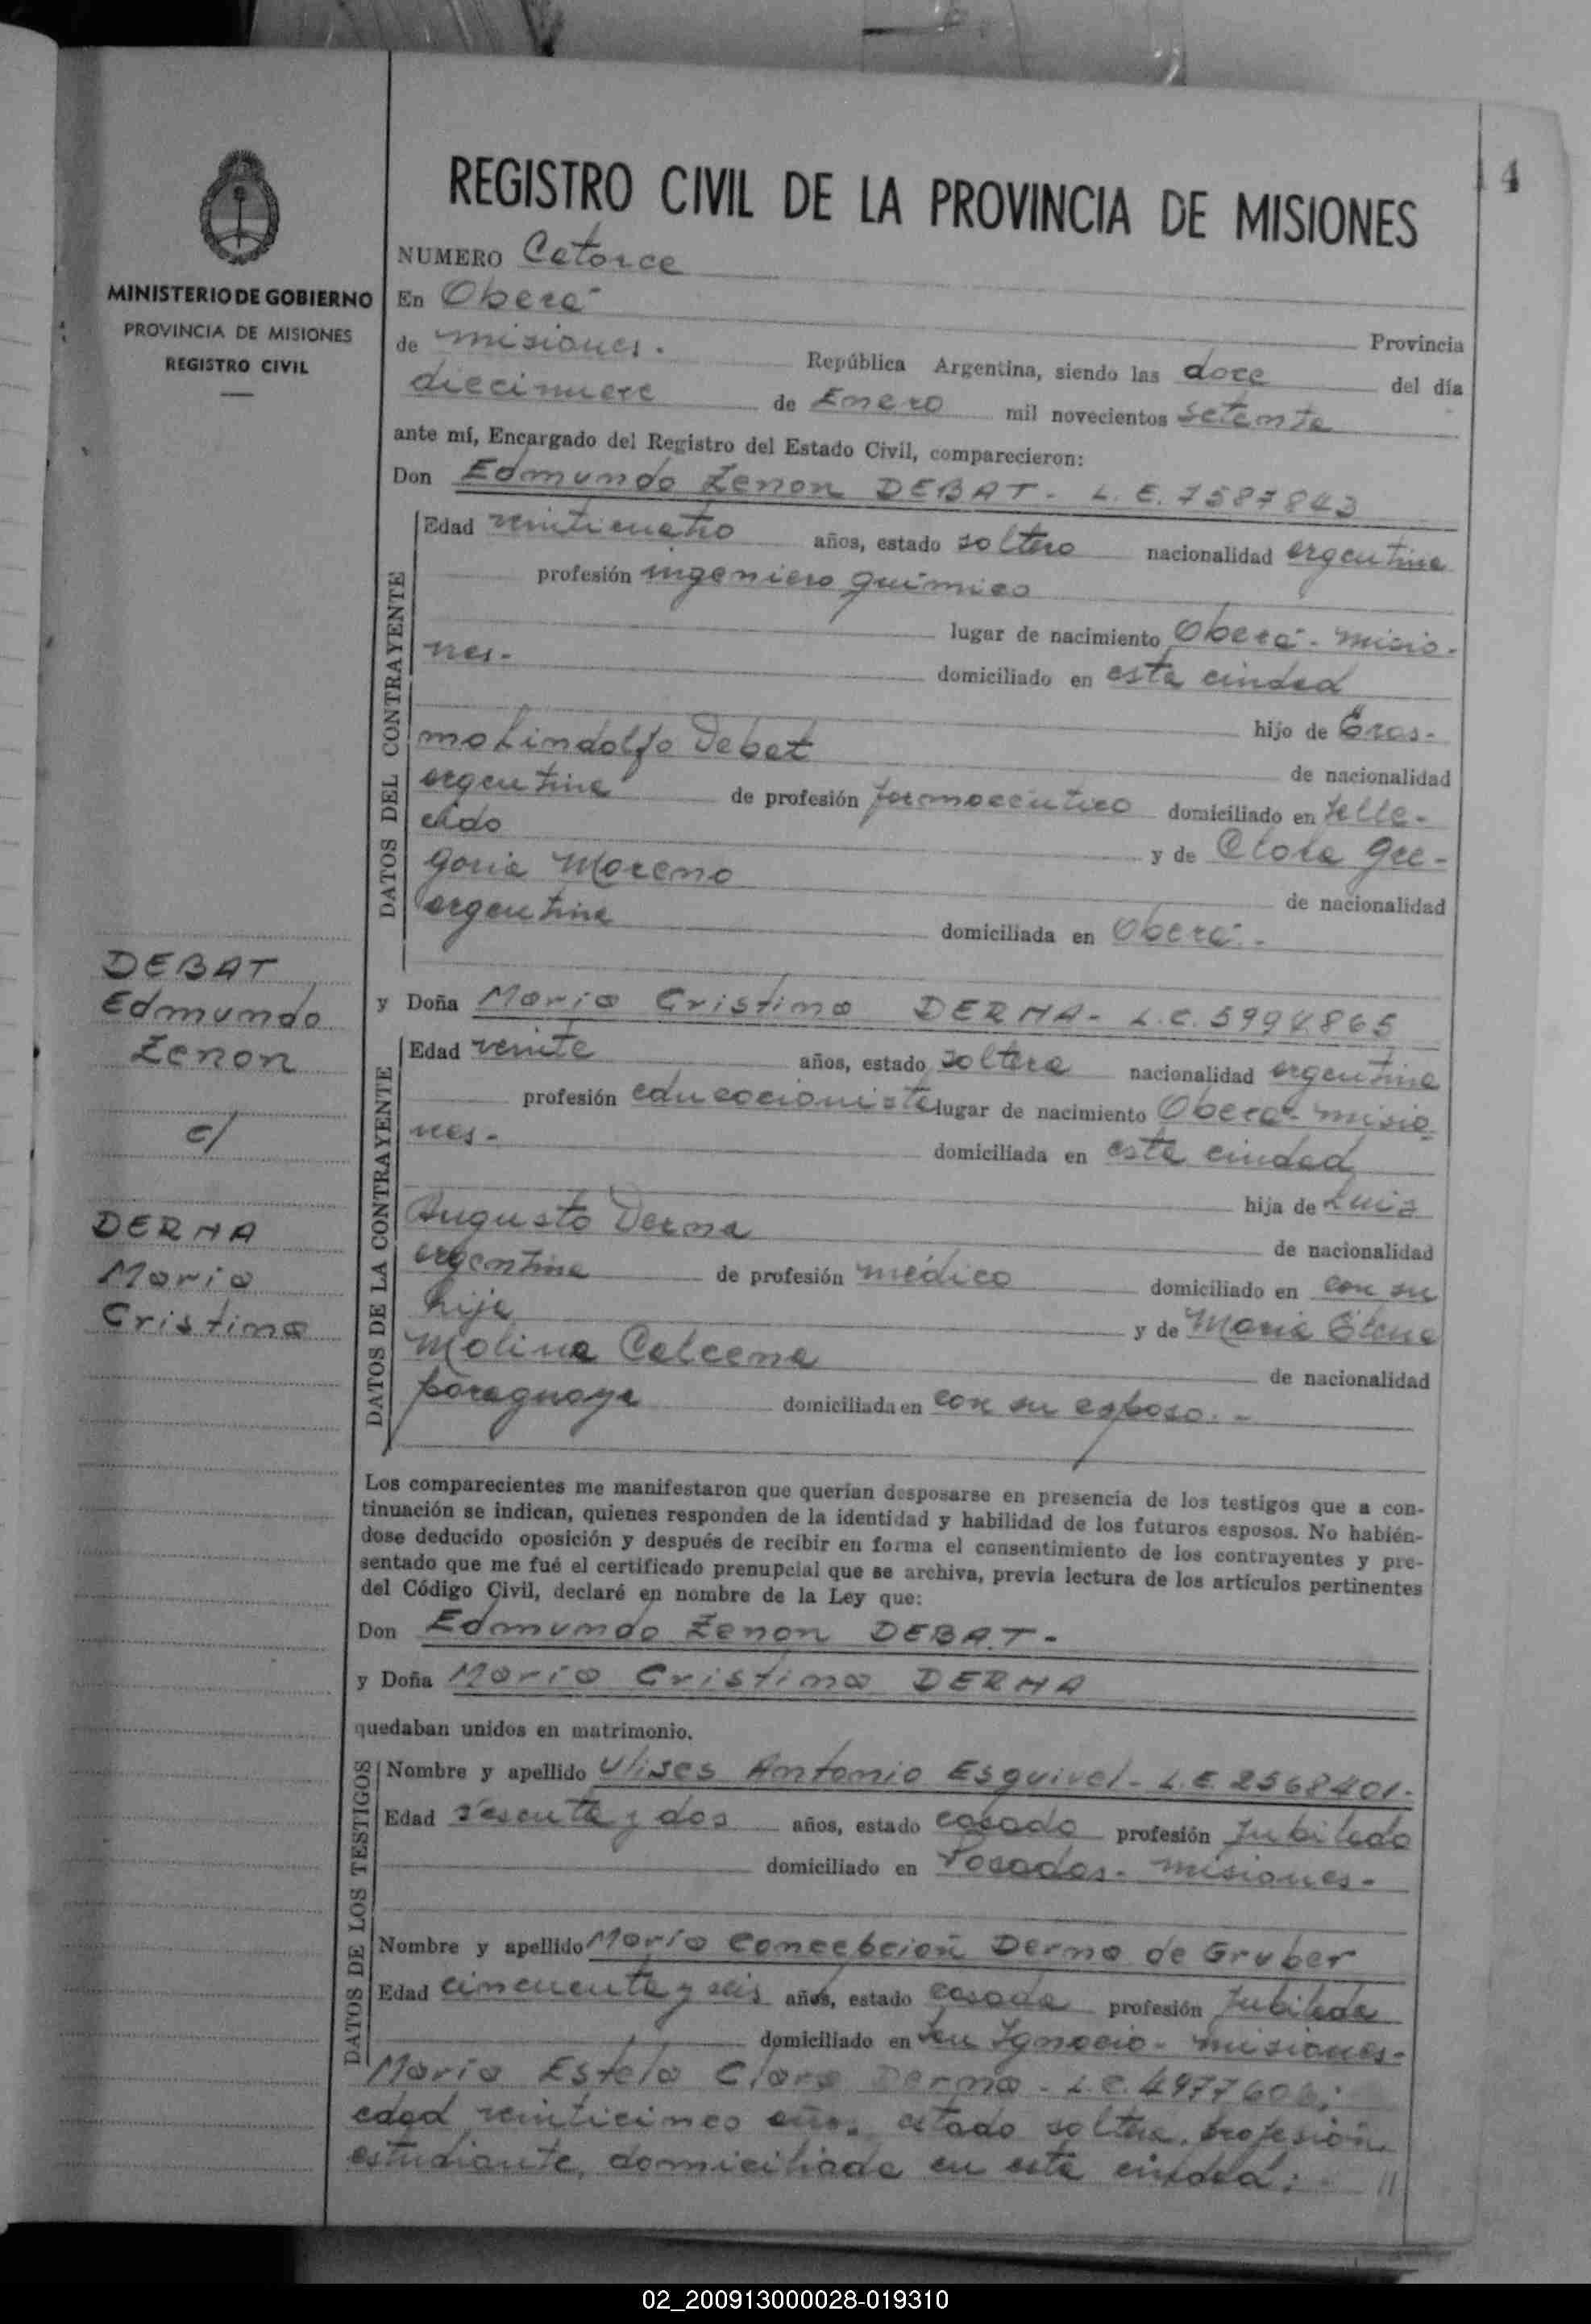 14
REGISTRO CIVIL DE LA PROVINCIA DE MISIONES
MINISTERIO DE GOBIERNO
PROVINCIA DE MISIONES
REGISTRO CIVIL
NUMERO Catorce
En Oberá
Provincia
de misiones. República Argentina, siendo las doce del día
diecinueve de Enero mil novecientos setenta
ante mí, Encargado del Registro del Estado Civil, comparecieron:
Don Edmundo Zenon DEBAT - L. E. 7587843
DATOS DEL CONTRAYENTE
Edad veinticuatro años, estado soltero nacionalidad argentina
profesión ingeniero químico
lugar de nacimiento Oberá - misio-
nes - domiciliado en esta ciudad
hijo de Eras-
mo Lindolfo Debat de nacionalidad
argentina de profesión farmaceutico domiciliado en falle-
cido y de Clora Gre-
goria Moreno de nacionalidad
argentina domiciliada en Oberá -
y Doña Maria Cristina DERNA - L.C. 5994865
DATOS DE LA CONTRAYENTE
Edad veinte años, estado soltera nacionalidad argentina
profesión educacionista lugar de nacimiento Oberá - misio-
nes - domiciliada en esta ciudad
hija de Luis
Augusto Derna de nacionalidad
argentina de profesión médico domiciliado en con su
hija y de Maria Elena
Molina Calcena de nacionalidad
paraguaya domiciliada en con su esposo. -
DEBAT
Edmundo
Zenon
c/
DERNA
Maria
Cristina
Los comparecientes me manifestaron que querían desposarse en presencia de los testigos que a con-
tinuación se indican, quienes responden de la identidad y habilidad de los futuros esposos. No habién-
dose deducido oposición y después de recibir en forma el consentimiento de los contrayentes y pre-
sentado que me fué el certificado prenupcial que se archiva, previa lectura de los artículos pertinentes
del Código Civil, declaré en nombre de la Ley que:
Don Edmundo Zenon DEBAT -
y Doña Maria Cristina DERNA
quedaban unidos en matrimonio.
DATOS DE LOS TESTIGOS
Nombre y apellido Ulises Antonio Esquivel - L.E. 2568401 -
Edad sesenta y dos años, estado casado profesión Jubilado
domiciliado en Posadas - misiones -
Nombre y apellido Maria Concepcion Derna de Gruber
Edad cincuenta y seis años, estado casada profesión Jubilada
domiciliado en San Ignacio - misiones -
Maria Estela Clara Derna - L.C. 4977606;
edad veinticinco años, estado soltera, profesión
estudiante, domiciliada en esta ciudad; - //
02_200913000028-019310